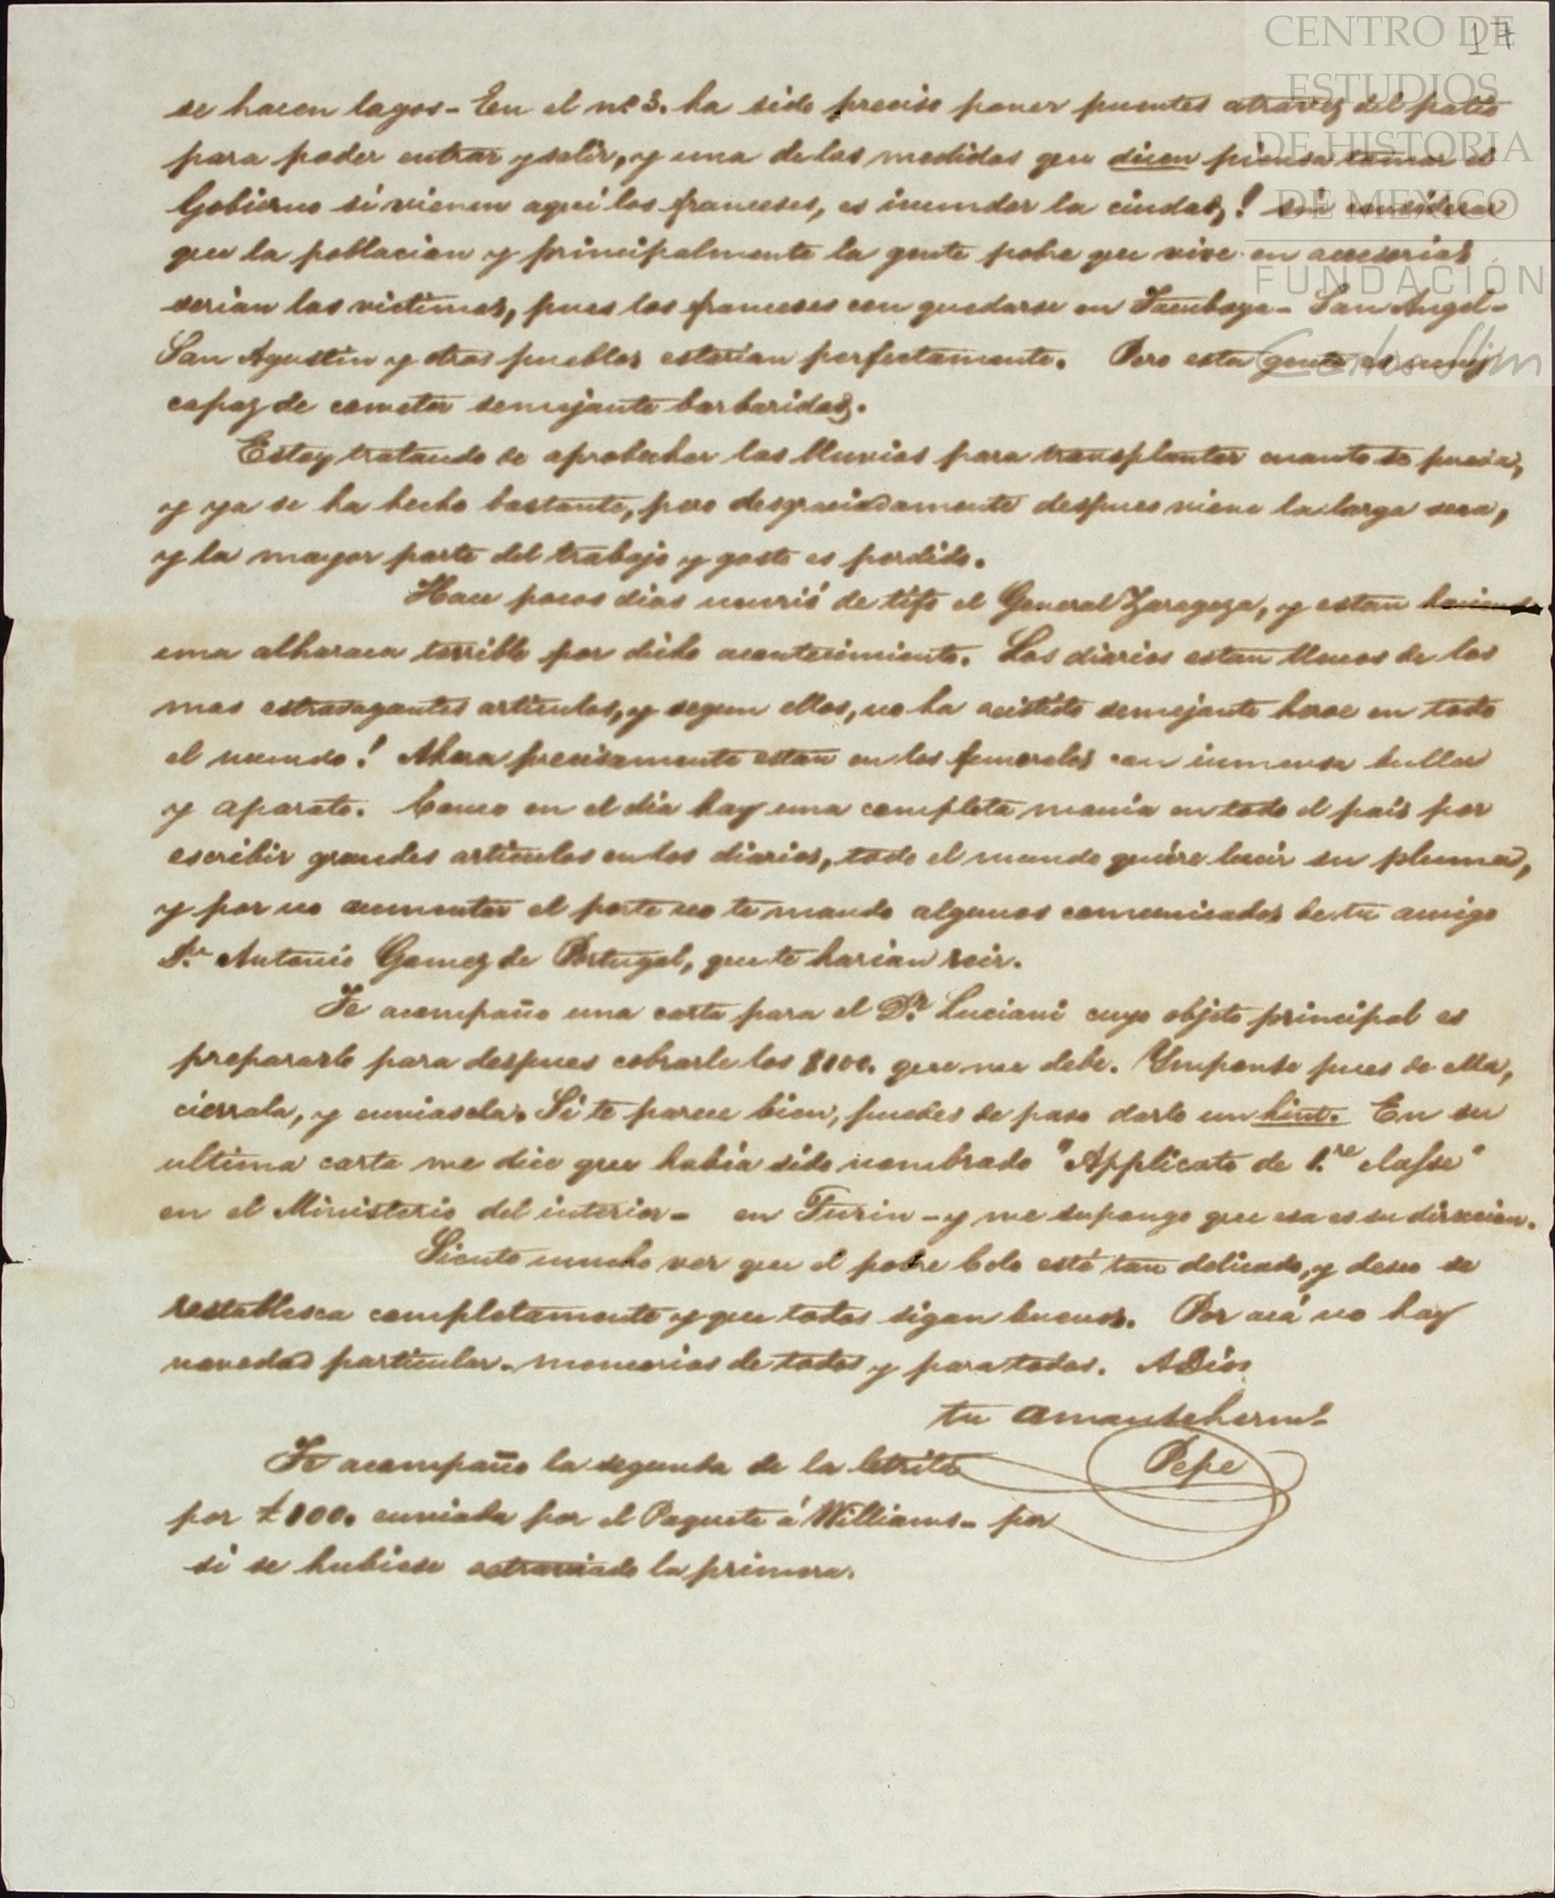 CENTRO DE
ESTUDIOS
DE HISTORIA
DE MEXICO
FUNDACIÓN
Carlos Slim
17
se hacen lagos - En el nº 3. ha sido preciso poner puentes atravez del patio
para poder entrar y salir, y una de las medidas que dicen piensa tomar el
Gobierno si vienen aqui los franceses, es inundar la ciudad,! sin considerar
que la poblacion y principalmente la gente pobre que vive en accesorias
serian las victimas, pues los franceses con quedarse en Tacubaya - San Angel -
San Agustin y otros pueblos estarian perfectamente. Pero esta gente es muy
capaz de cometer semejante barbaridad.
Estoy tratando de aprobechar las lluvias para transplantar cuanto se pueda,
y ya se ha hecho bastante, pero desgraciadamente despues viene la larga seca,
y la mayor parte del trabajo y gasto es perdido.
Hace pocos dias murió de tifo el General Zaragoza, y estan haciendo
una alharaca terrible por dicho acontecimiento. Los diarios estan llenos de los
mas estravagantes articulos, y segun ellos, no ha existido semejante heroe en todo
el mundo! Ahora precisamente estan en los funerales con inmensa bulla
y aparato. Como en el dia hay una completa mania en todo el país por
escribir grandes articulos en los diarios, todo el mundo quiere lucir su pluma,
y por no aumentar el porte no te mando algunos comunicados de tu amigo
Dn. Antonio Gomez de Portugal, que te harian reir.
Te acompaño una carta para el Dr. Luciani cuyo objeto principal es
prepararlo para despues cobrarle los $100. que me debe. Ymponte pues de ella,
cierrala, y enviasela. Si te parece bien, puedes de paso darle un hint. En su
ultima carta me dice que habia sido nombrado "Applicato de 1.re classe"
en el Ministerio del interior - en Turin - y me supongo que esa es su direccion.
Siento mucho ver que el pobre Lolo esté tan delicado, y deseo se
restablesca completamente y que todos sigan buenos. Por acá no hay
novedad particular - memorias de todos y para todos. ADios
tu amante hermo.
Pepe
Te acompaño la segunda de la letrita
por £100. enviada por el Paquete á Williams - por
si se hubiese estraviado la primera.